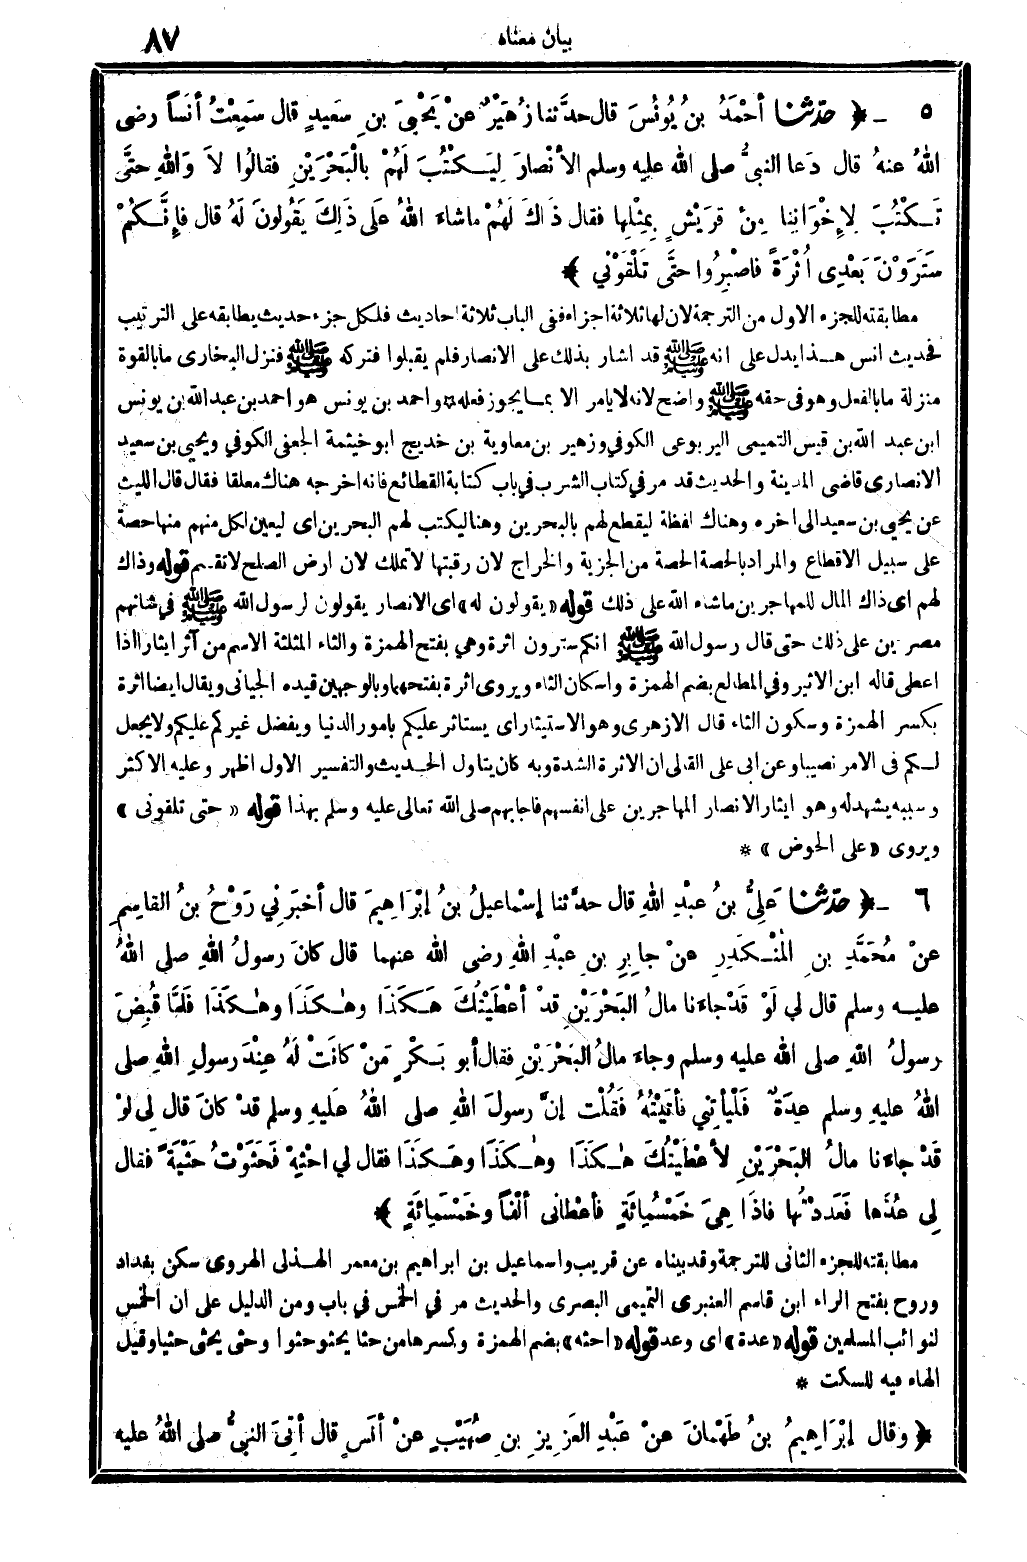 بيان معناه ٨٧
٥ ـ ﴿ حدّثنا أحْمَدُ بنُ يُونُسَ قال حدَّثنا زُهَيْرٌ عنْ يَحْيَى بنِ سَعِيدٍ قال سَمِعْتُ أنَساً رضى
اللهُ عنهُ قال دَعا النبىُّ صلى الله عليه وسلم الأنْصارَ لِيَكْتُبَ لَهُمْ بالْبَحْرَيْنِ فقالُوا لاَ وَاللهِ حتَّى
تَكْتُبَ لإخْوَانِنا مِنْ قرَيْشٍ بِمِثْلِها فقال ذَاكَ لَهُمْ ماشاءَ اللهُ عَلَى ذٰلِكَ يَقُولونَ لَهُ قال فإنَّكُمْ
سَتَرَوْنَ بَعْدِى أُثْرَةً فاصْبِرُوا حتَّى تَلْقَوْنِي ﴾
مطابقته للجزء الاول من الترجمة لان لها ثلاثة اجزاء ففى الباب ثلاثة احاديث فلكل جزء حديث يطابقه على الترتيب
فحديث انس هذا يدل على انه ﷺ قد اشار بذلك على الانصار فلم يقبلوا فتركه ﷺ فنزل البخارى ما بالقوة
منزلة ما بالفعل وهو فى حقه ﷺ واضح لانه لا يامر الا بما يجوز فعله * واحمد بن يونس هو احمد بن عبدالله بن يونس
ابن عبد الله بن قيس التميمى اليربوعى الكوفي وزهير بن معاوية بن خديج ابو خيثمة الجعفى الكوفي ويحيى بن سعيد
الانصارى قاضى المدينة والحديث قد مر في كتاب الشرب في باب كتابة القطائع فانه اخرجه هناك معلقا فقال قال الليث
عن يحيى بن سعيد الى اخره وهناك لفظة ليقطع لهم بالبحرين وهنا ليكتب لهم البحرين اى ليعين لكل منهم منها حصة
على سبيل الاقطاع والمراد بالحصة الحصة من الجزية والخراج لان رقبتها لا تملك لان ارض الصلح لا تقسم قوله وذاك
لهم اى ذاك المال للمهاجرين ما شاء الله على ذلك قوله «يقولون له» اى الانصار يقولون لرسول الله ﷺ في شانهم
مصرين على ذلك حتى قال رسول الله ﷺ انكم سترون اثرة وهي بفتح الهمزة والثاء المثلثة الاسم من آثر ايثارا اذا
اعطى قاله ابن الاثير وفي المطالع بضم الهمزة واسكان الثاء ويروى اثرة بفتحهما وبالوجهين قيده الجيانى ويقال ايضا اثرة
بكسر الهمزة وسكون الثاء قال الازهرى وهو الاستيثار اى يستاثر عليكم بامور الدنيا ويفضل غيركم عليكم ولا يجعل
لكم فى الامر نصيبا وعن ابى على القالى ان الاثرة الشدة وبه كان يتاول الحديث والتفسير الاول اظهر وعليه الاكثر
وسببه يشهد له وهو ايثار الانصار المهاجرين على انفسهم فاجابهم صلى الله تعالى عليه وسلم بهذا قوله «حتى تلقونى»
ويروى «على الحوض» *
٦ ـ ﴿ حدّثنا عَلِىُّ بنُ عبْدِ اللهِ قال حدَّثنا إسْماعيلُ بنُ إبْرَاهِيمَ قال أخبَرَنِي رَوْحُ بنُ القاسِمِ
عنْ مُحَمَّدِ بنِ المُنْكَدِرِ عنْ جابِرِ بنِ عبْدِ اللهِ رضى الله عنهما قال كانَ رسولُ اللهِ صلى اللهُ
عليه وسلم قال لي لَوْ قَدْ جاءَنا مالُ البَحْرَيْنِ قدْ أعْطَيْتُكَ هَكَذَا وهٰكَذَا وهٰكَذَا فَلَمَّا قُبِضَ
رسولُ اللهِ صلى الله عليه وسلم وجاءَ مالُ البَحْرَيْنِ فقال أبو بَكْرٍ مَنْ كانَتْ لَهُ عِنْدَ رسولِ اللهِ صلى
اللهُ عليهِ وسلم عِدَةٌ فَلْيأتِنِي فأتَيْتُهُ فَقُلْت إنَّ رسولَ اللهِ صلى اللهُ عَليهِ وسلم قدْ كانَ قال لِى لَوْ
قَدْ جاءَنا مالُ البَحْرَيْنِ لأعْطَيْتُكَ هٰكَذَا وهٰكَذَا وهَكَذَا فقال لي احْثِهْ فَحَثَوْتُ حَثْيَةً فقال
لِى عُدَّها فَعَدَدْتُها فاذَا هِيَ خَمْسُمِائَةٍ فأعْطانى ألْفاً وخَمْسَمِائَةٍ ﴾
مطابقته للجزء الثانى للترجمة وقد بيناه عن قريب واسماعيل بن ابراهيم بن معمر الهذلى الهروى سكن بغداد
وروح بفتح الراء ابن قاسم العنبرى التميمى البصرى والحديث مر في الخمس في باب ومن الدليل على ان الخمس
لنوائب المسلمين قوله «عدة» اى وعد قوله «احثه» بضم الهمزة وبكسرها من حثا يحثو حثوا وحثى يحثى حثيا وقيل
الهاء فيه للسكت *
﴿ وقال إبْرَاهِيمُ بنُ طَهْمَانَ عنْ عَبْدِ العَزِيزِ بنِ صُهَيْبٍ عنْ أنَسٍ قال أُتِىَ النبىُّ صلى اللهُ عليه